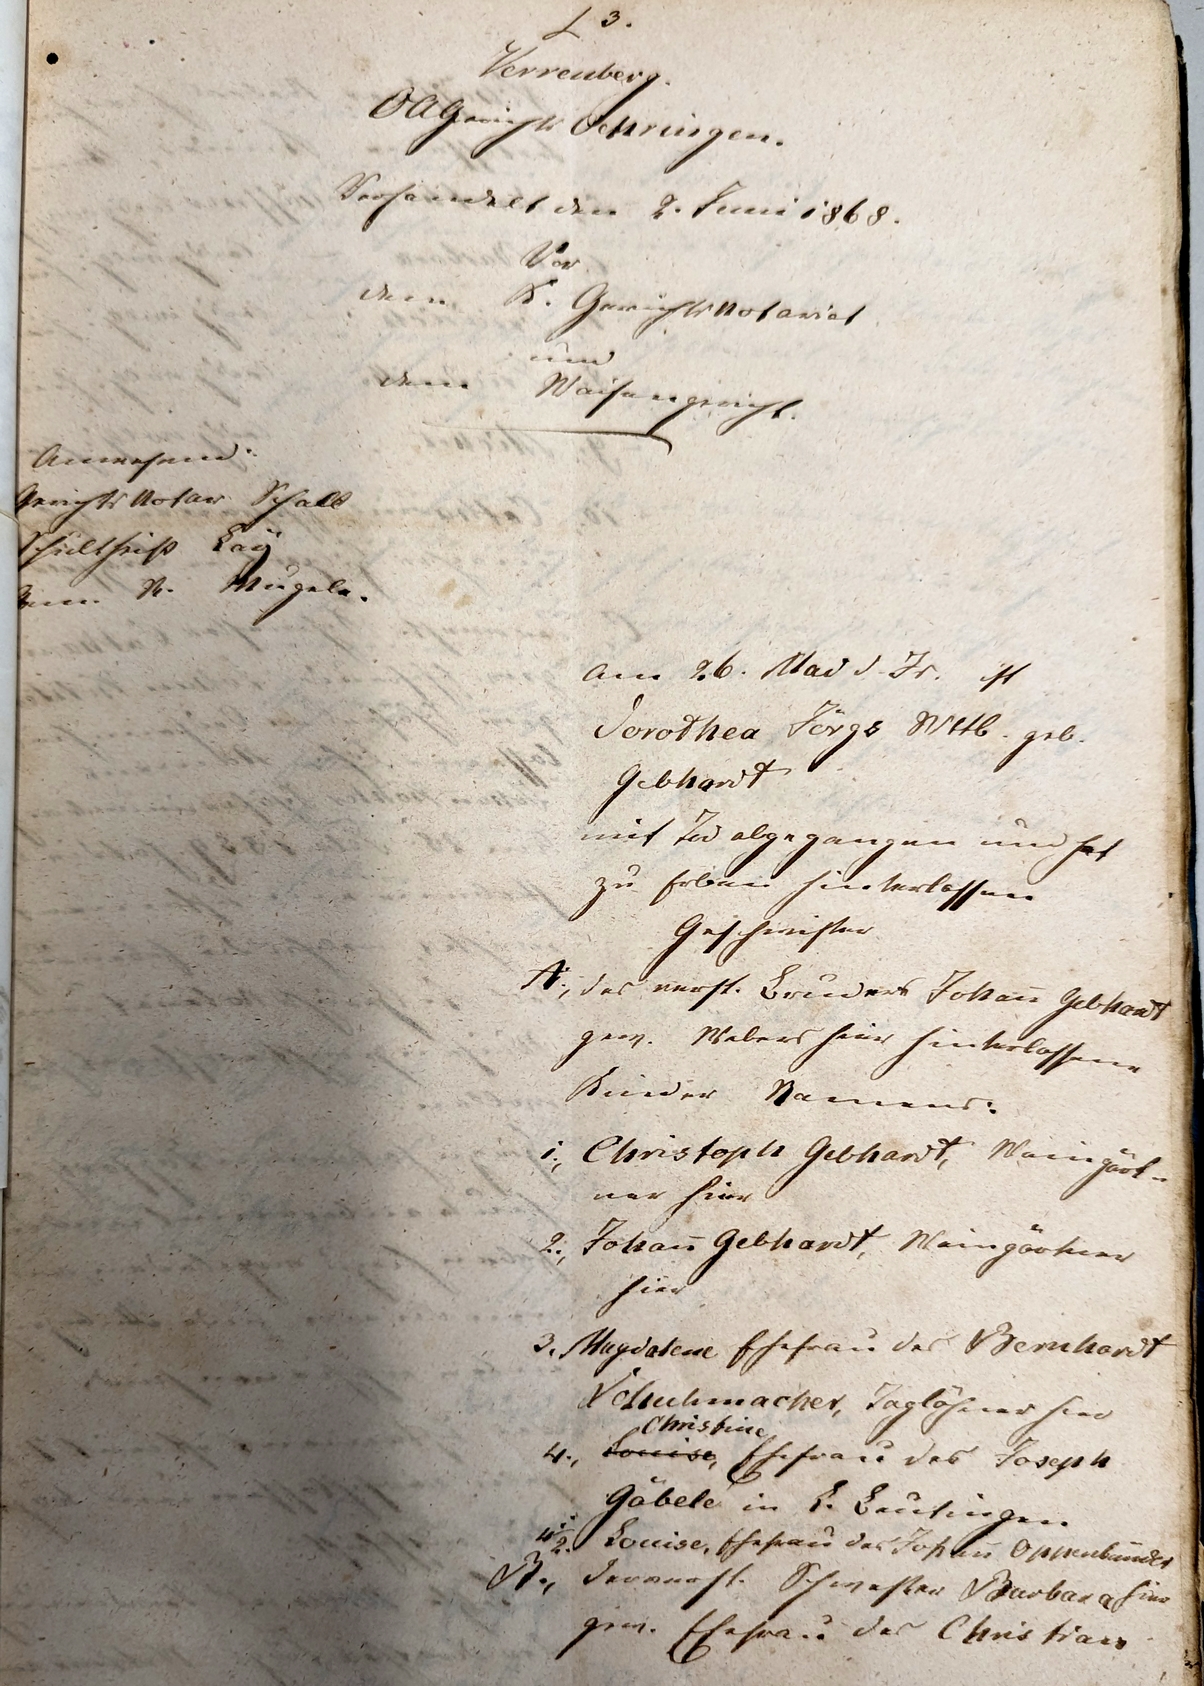 L 3.
Verrenberg.
OAGerichts Oehringen.
Verhandelt den 2. Juni 1868.
Vor
dem K. Gerichtsnotariat
und
dem Waisengericht.
Anwesend:
Gerichtsnotar Schall
Schultheiß Laÿ
Mugele.
Am 26. Mai d. Js. ist
Dorothea Jörgs Wttb. geb.
Gebhardt
mit Tod abgegangen und hat
zu Erben hinterlassen
Geschwister
A., des verst. Bruders Johañ Gebhardt
gew. Webers hier hinterlassene
Kinder Namens:
1., Christoph Gebhardt, Weingärt-
ner hier
2., Johañ Gebhardt, Weingärtner
hier
3. Magdalene Ehefrau des Bernhardt
Schuhmacher, Taglöhner hier
Christine
4., Louise, Ehefrau des Joseph
Gäbele in
4 1/2. Louise, Ehefrau des Johañ Oppenländer
hier
B., der verst. Schwester Barbara
gew. Ehefrau des Christian